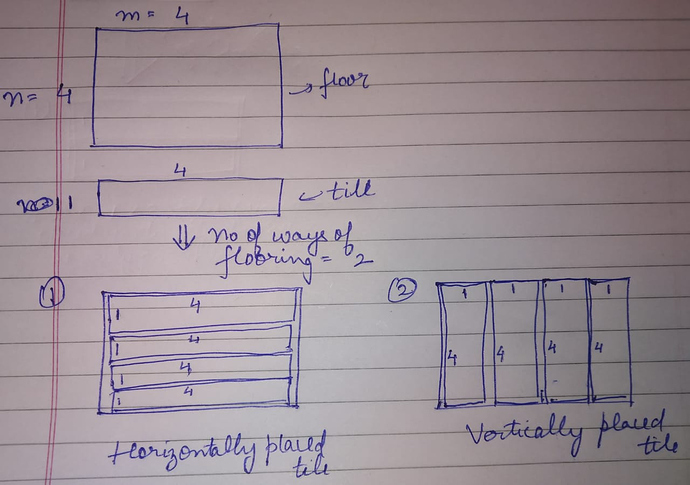 m = 4
n = 4
→ floor
4
1
← till
⇓ no of ways of
flooring = 2
①
②
4
1
4
1
4
1
4
1
1 1 1 1
4 4 4 4
Horizontally placed
tile
Vertically placed
tile